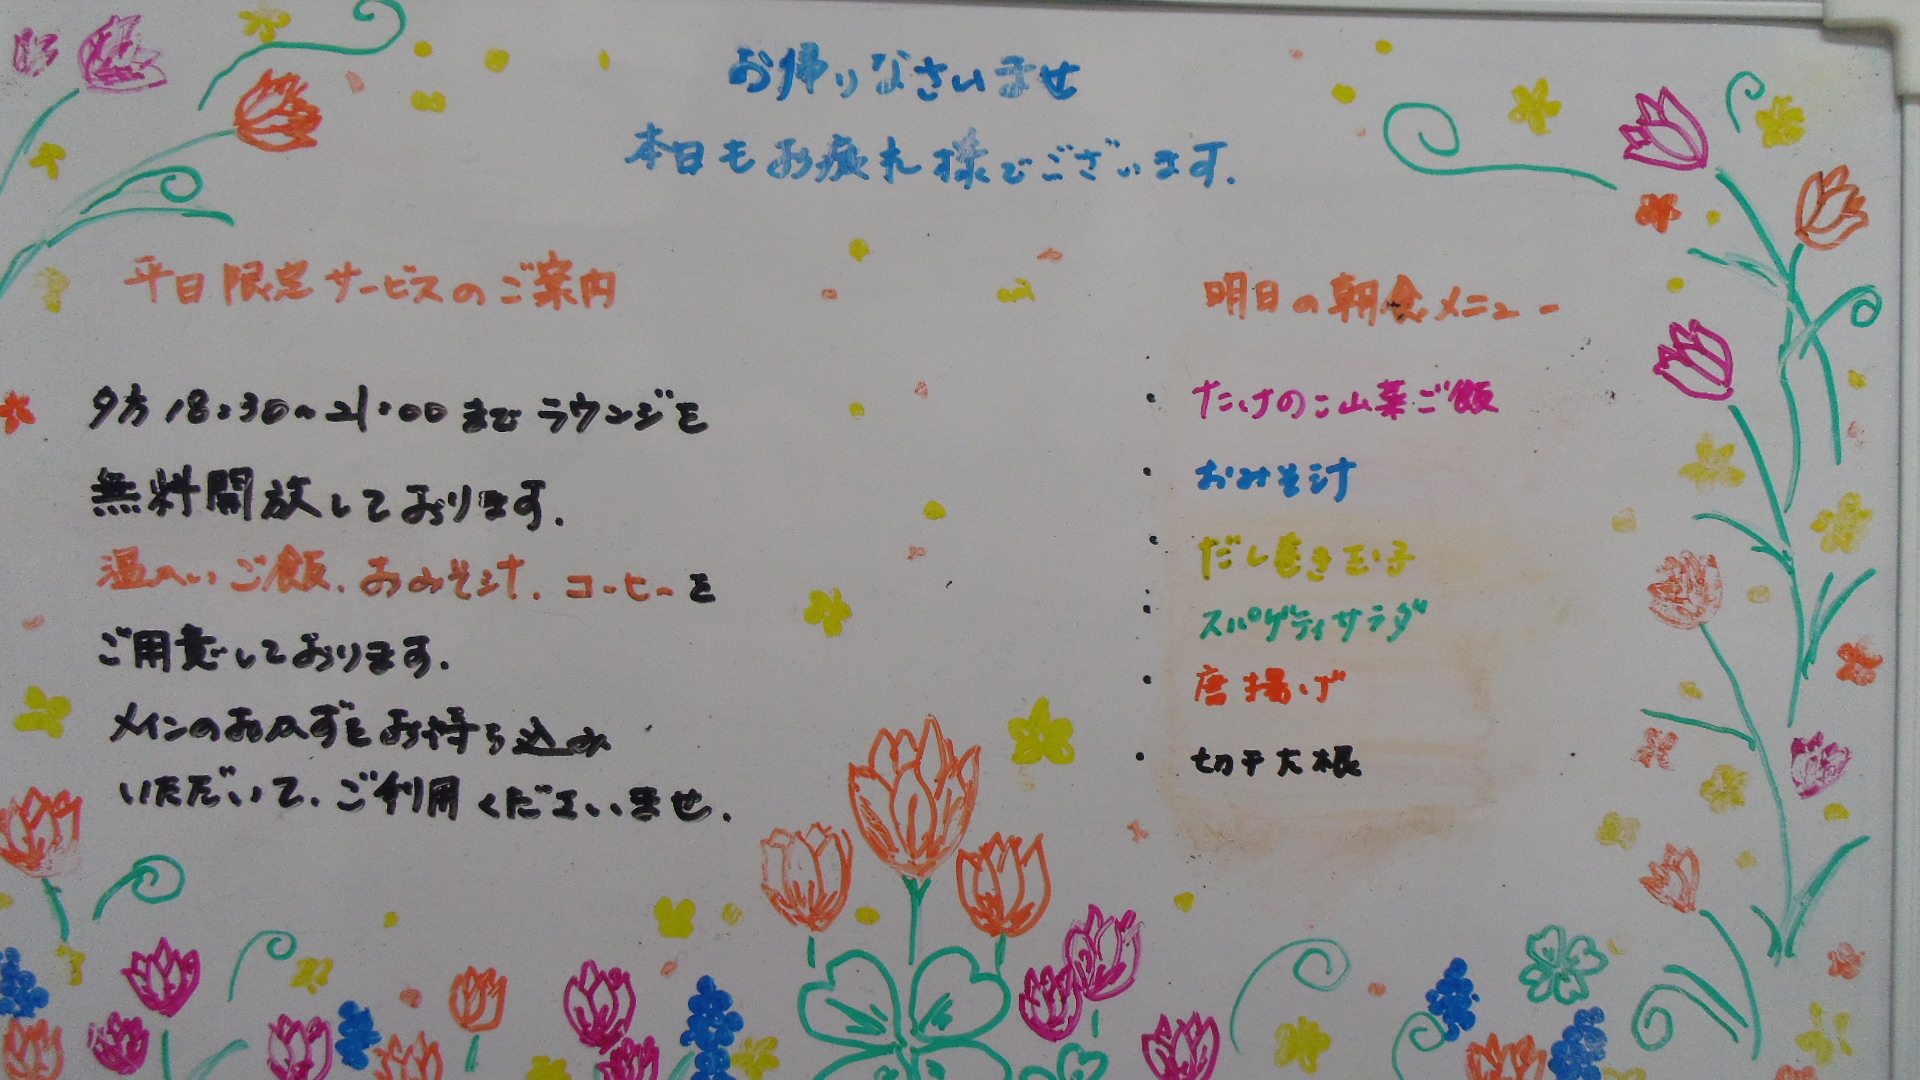 お帰りなさいませ
本日もお疲れ様でございます.
平日限定サービスのご案内
夕方18:30~21:00までラウンジを
無料開放しております.
温かいご飯.おみそ汁.コーヒーを
ご用意しております.
メインのおかずをお持ち込み
いただいて.ご利用くださいませ.
明日の朝食メニュー
・たけのこ山菜ご飯
・おみそ汁
・だし巻き玉子
・スパゲティサラダ
・唐揚げ
・切干大根